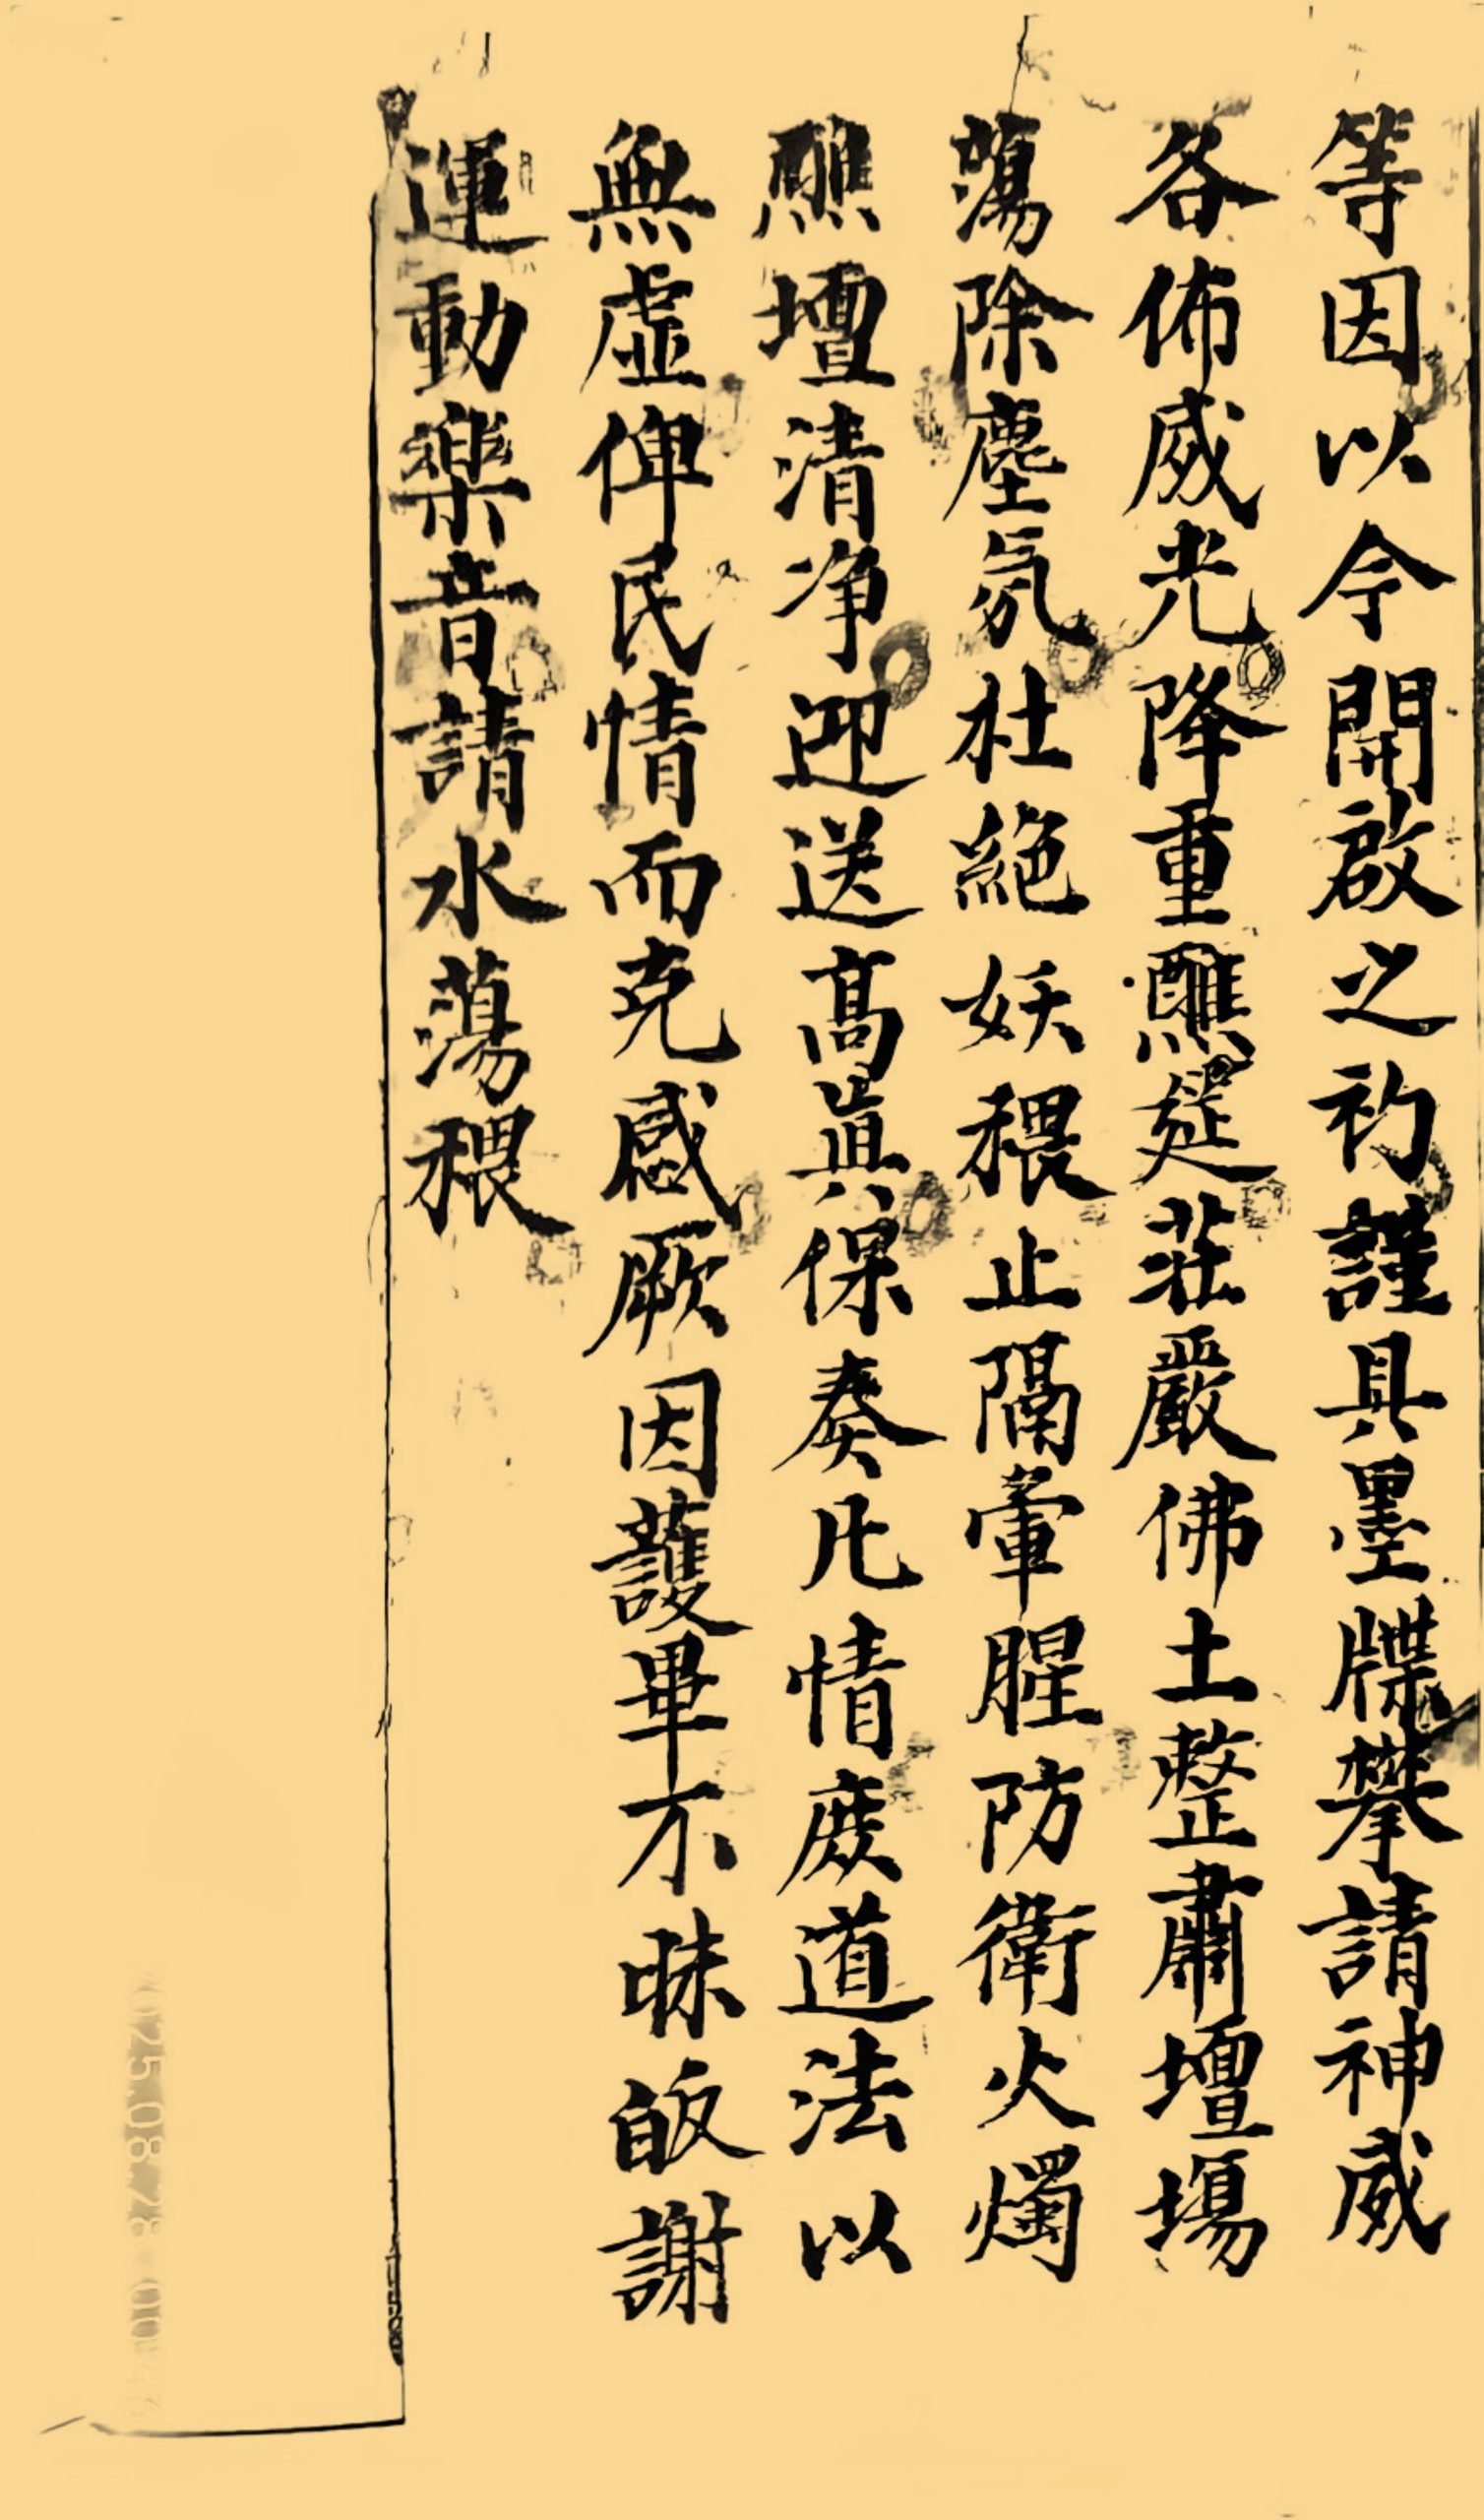 等因以今開啟之初謹具墨牒攀請神威
各佈威光降重醮筵莊嚴佛土整肅壇場
蕩除塵氛杜絕妖穢止隔葷腥防衛火燭
醮壇清净迎送高眞保奏凡情庶道法以
無虛俾民情而克感厥因護畢不昧皈謝
運動樂音請水蕩穢